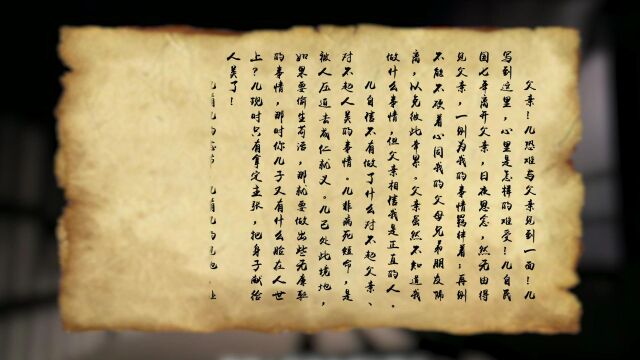 父亲!儿恐难与父亲见到一面!儿
写到这里,心里是怎样的难受!儿自民
国七年离开父亲,日夜思念,然无由得
见父亲,一则为我的事情羁绊着;再则
不能不硬着心同我的父母兄弟朋友隔
离,以免彼此牵累。父亲虽然不知道我
做什么事情,但父亲相信我是正直的人。
儿自信不有做了什么对不起父亲、
对不起人类的事情。儿非病死短命,是
被人压迫去成仁就义。儿已处此境地,
如果要偷生苟活,那就要做出些无廉耻
的事情,那时你儿子又有什么脸在人世
上?儿现时只有拿定主张,把身子献给
人类了!